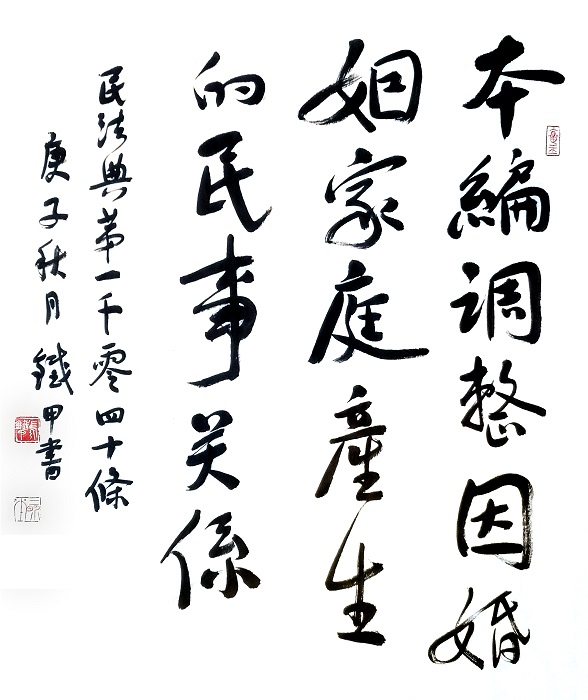 本編調整因婚
姻家庭產生
的民事关係
民法典第一千零四十條
庚子秋月 鐵甲書